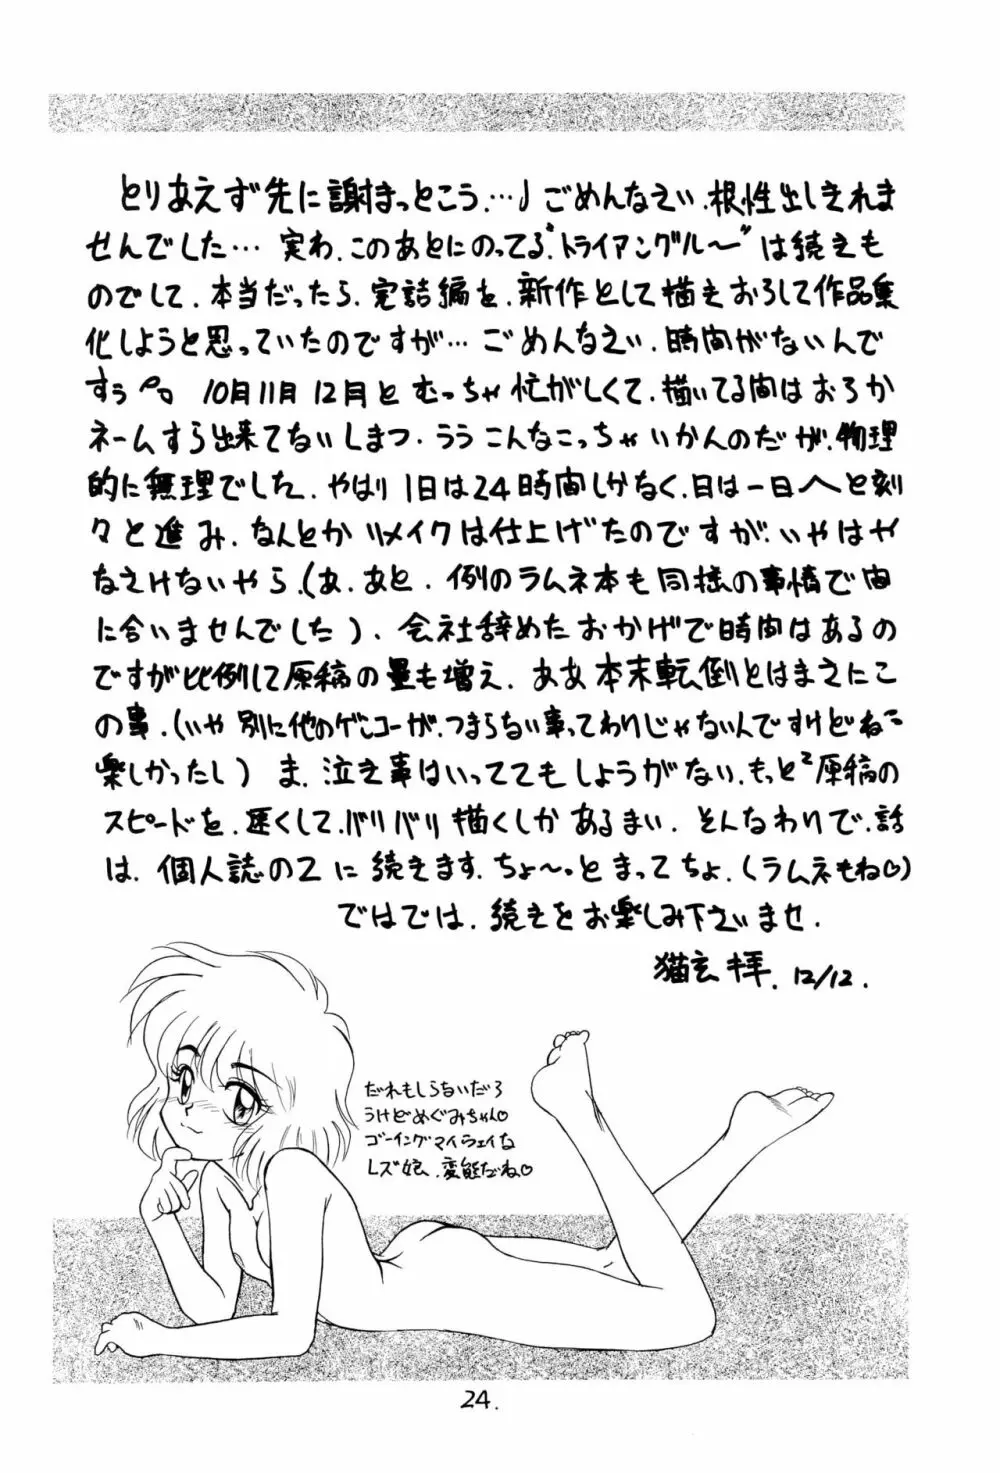 とりあえず先に謝まっとこう…♩ごめんなさい.根性出しきれま
せんでした…実わ.このあとにのってる"トライアングル〜"は続きも
のでして.本当だったら.完結編を.新作として描きおろして作品集
化しようと思っていたのですが…ごめんなさい.時間がないんで
すぅ 10月11月12月とむっちゃ忙がしくて.描いてる間はおろか
ネームすら出来てないしまつ.うう こんなこっちゃいかんのだが.物理
的に無理でした.やはり1日は24時間しかなく.日は一日へと刻
々と進み.なんとかリメイクは仕上げたのですが.いやはや
なさけないやら.(あ.あと.例のラムネ本も同様の事情で間
に合いませんでした).会社辞めたおかげで時間はあるの
ですが比例して原稿の量も増え.ああ本末転倒とはまさにこ
の事.(いや 別に他のゲンコーが.つまらない事ってわりじゃないんですけどね
楽しかったし) ま.泣き事はいっててもしょうがない.もっと²原稿の
スピードを.速くして.バリバリ描くしかあるまい.そんなわりで.話
は.個人誌の2に続きます.ちょ〜っとまってちょ.(ラムネもね♡)
ではでは.続きをお楽しみ下さいませ.
猫玄拝.12/12.
だれもしらないだろ
うけどめぐみちゃん♡
ゴーイングマイウェイな
レズ娘.変態だね♡
24.